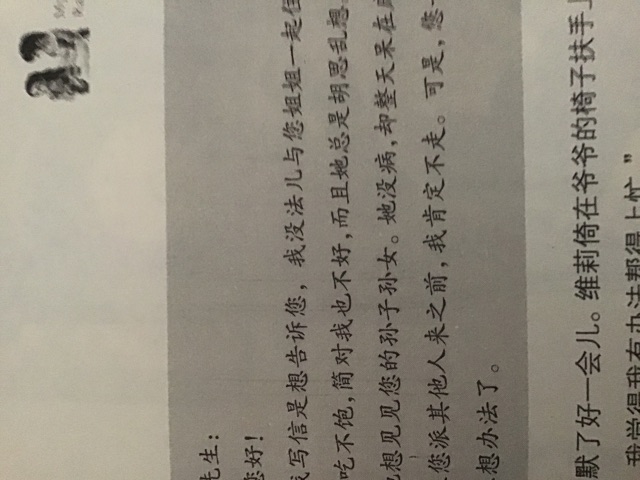 先生：
您好！
我写信是想告诉您，我没法儿与您姐姐一起住
吃不饱，简对我也不好，而且她总是胡思乱想。
想见见您的孙子孙女。她没病，却整天呆在
您派其他人来之前，我肯定不走。可是，您一
想办法了。
默了好一会儿。维莉倚在爷爷的椅子扶手上
我觉得我有办法帮得上忙。”